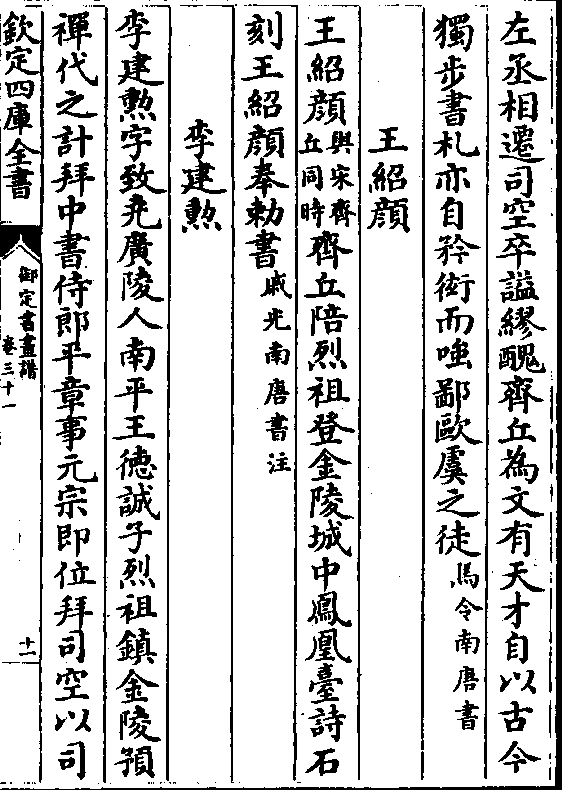 左丞相遷司空卒謚繆醜齊丘為文有天才自以古今
獨步書札亦自矜衒而嗤鄙歐虞之徒馬令南唐書
王紹顔
王紹顔與宋齊丘同時齊丘陪烈祖登金陵城中鳳凰臺詩石
刻王紹顔奉勅書戚光南唐書注
李建勲
李建勲字致堯廣陵人南平王徳誠子烈祖鎮金陵預
禪代之計拜中書侍郎平章事元宗即位拜司空以司
欽定四庫全書
御定書畫譜
卷三十一
十二